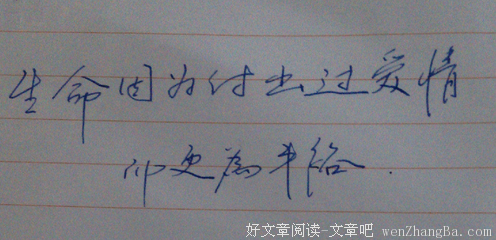 生命因为付出过爱情
而更为丰裕.
好文章阅读-文章吧 wenZhangBa.com